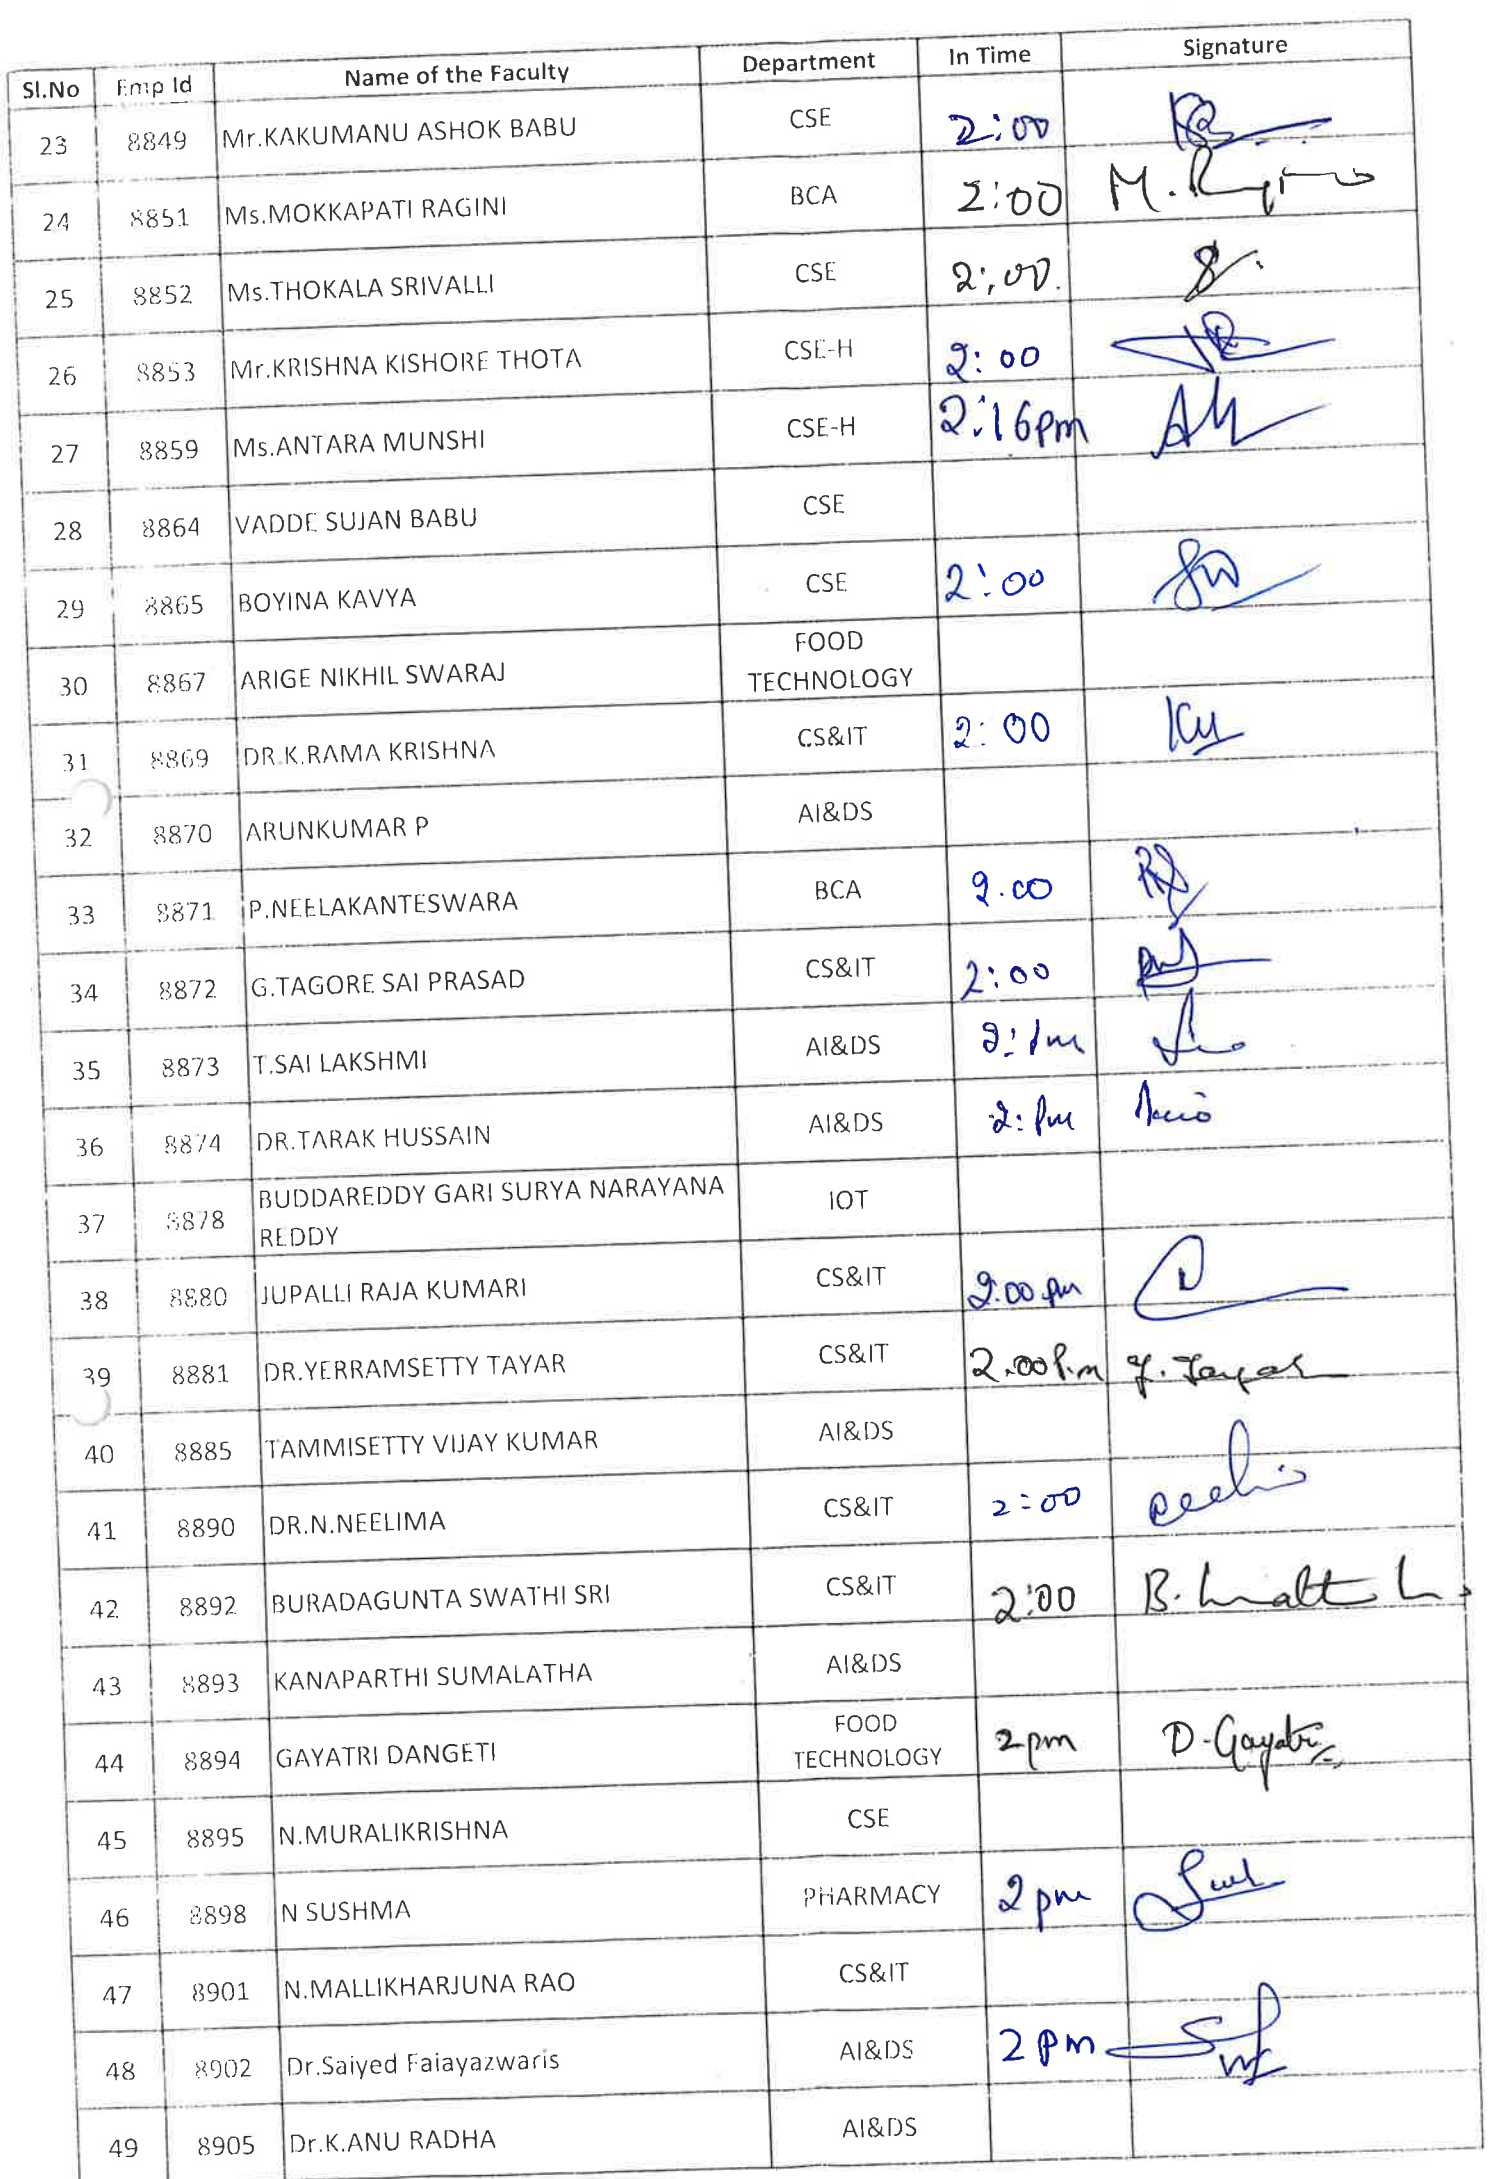 Sl.No Emp Id Name of the Faculty Department In Time Signature
23 8849 Mr.KAKUMANU ASHOK BABU CSE 2:00
24 8851 Ms.MOKKAPATI RAGINI BCA 2:00 M. Ragini
25 8852 Ms.THOKALA SRIVALLI CSE 2:00.
26 8853 Mr.KRISHNA KISHORE THOTA CSE-H 2:00
27 8859 Ms.ANTARA MUNSHI CSE-H 2:16pm
28 8864 VADDE SUJAN BABU CSE
29 8865 BOYINA KAVYA CSE 2:00
30 8867 ARIGE NIKHIL SWARAJ FOOD
TECHNOLOGY
31 8869 DR.K.RAMA KRISHNA CS&IT 2:00
32 8870 ARUNKUMAR P AI&DS
33 8871 P.NEELAKANTESWARA BCA 2.00
34 8872 G.TAGORE SAI PRASAD CS&IT 2:00
35 8873 T.SAI LAKSHMI AI&DS 2:pm
36 8874 DR.TARAK HUSSAIN AI&DS 2:pm
37 8878 BUDDAREDDY GARI SURYA NARAYANA
REDDY IOT
38 8880 JUPALLI RAJA KUMARI CS&IT 2.00 pm
39 8881 DR.YERRAMSETTY TAYAR CS&IT 2.00P.m Y. Tayar
40 8885 TAMMISETTY VIJAY KUMAR AI&DS
41 8890 DR.N.NEELIMA CS&IT 2:00
42 8892 BURADAGUNTA SWATHI SRI CS&IT 2:00 B.
43 8893 KANAPARTHI SUMALATHA AI&DS
44 8894 GAYATRI DANGETI FOOD
TECHNOLOGY 2pm D.Gayatri
45 8895 N.MURALIKRISHNA CSE
46 8898 N SUSHMA PHARMACY 2pm
47 8901 N.MALLIKHARJUNA RAO CS&IT
48 8902 Dr.Saiyed Faiayazwaris AI&DS 2pm
49 8905 Dr.K.ANU RADHA AI&DS